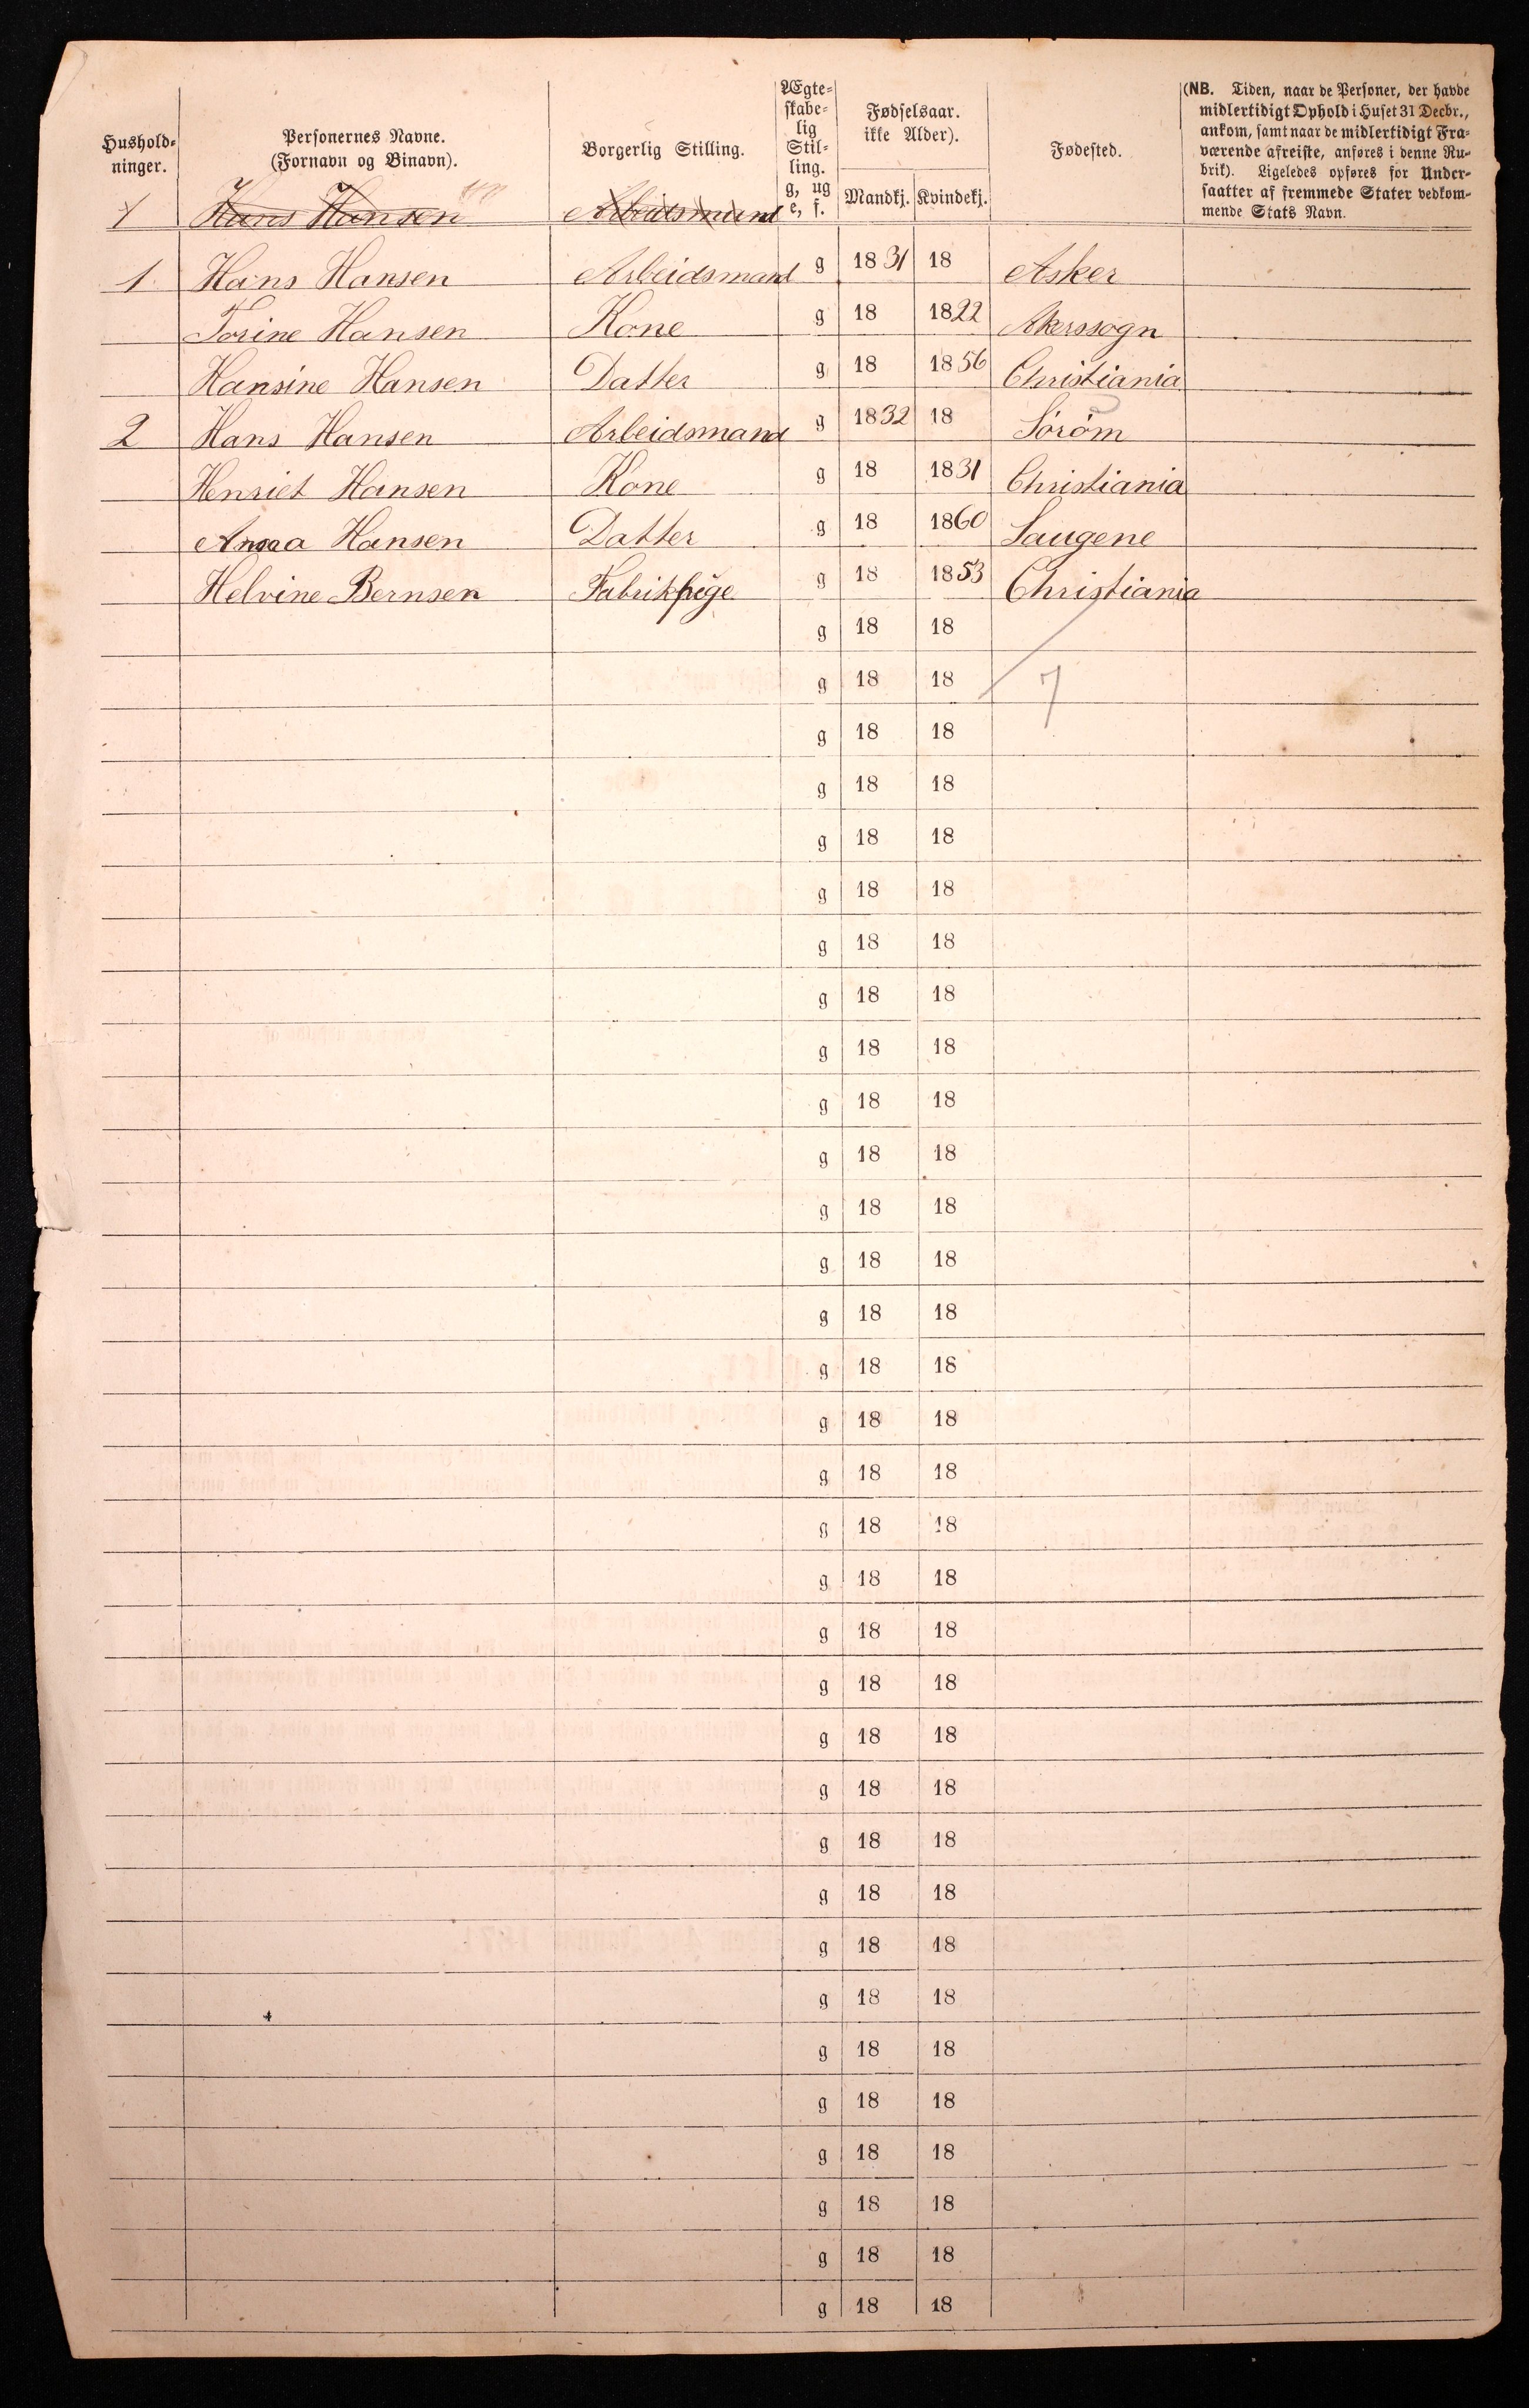 Hushold-
ninger.
Personernes Navne.
(Fornavn og Binavn).
Borgerlig Stilling.
Ægte-
skabe-
lig
Stil-
ling.
g, ug
e, f.
Fødselsaar.
ikke Alder).
Mandkj. Kvindekj.
Fødested.
(NB. Tiden, naar de Personer, der havde
midlertidigt Ophold i Huset 31 Decbr.,
ankom, samt naar de midlertidigt Fra-
værende afreiste, anføres i denne Ru-
brik). Ligeledes opføres for Under-
saatter af fremmede Stater vedkom-
mende Stats Navn.
1 Hans Hansen Arbeidsmand
1 Hans Hansen Arbeidsmand g 1831 18 Asker
Torine Hansen Kone g 18 1822 Akerssogn
Hansine Hansen Datter g 18 1856 Christiania
2 Hans Hansen Arbeidsmand g 1832 18 Sørøm
Henriet Hansen Kone g 18 1831 Christiania
Hansen Datter g 18 1860 Laugene
Helvine Bernsen Fabrikpige g 18 1853 Christiania
g 18 18
g 18 18 7
g 18 18
g 18 18
g 18 18
g 18 18
g 18 18
g 18 18
g 18 18
g 18 18
g 18 18
g 18 18
g 18 18
g 18 18
g 18 18
g 18 18
g 18 18
g 18 18
g 18 18
g 18 18
g 18 18
g 18 18
g 18 18
g 18 18
g 18 18
g 18 18
g 18 18
g 18 18
g 18 18
g 18 18
g 18 18
g 18 18
g 18 18